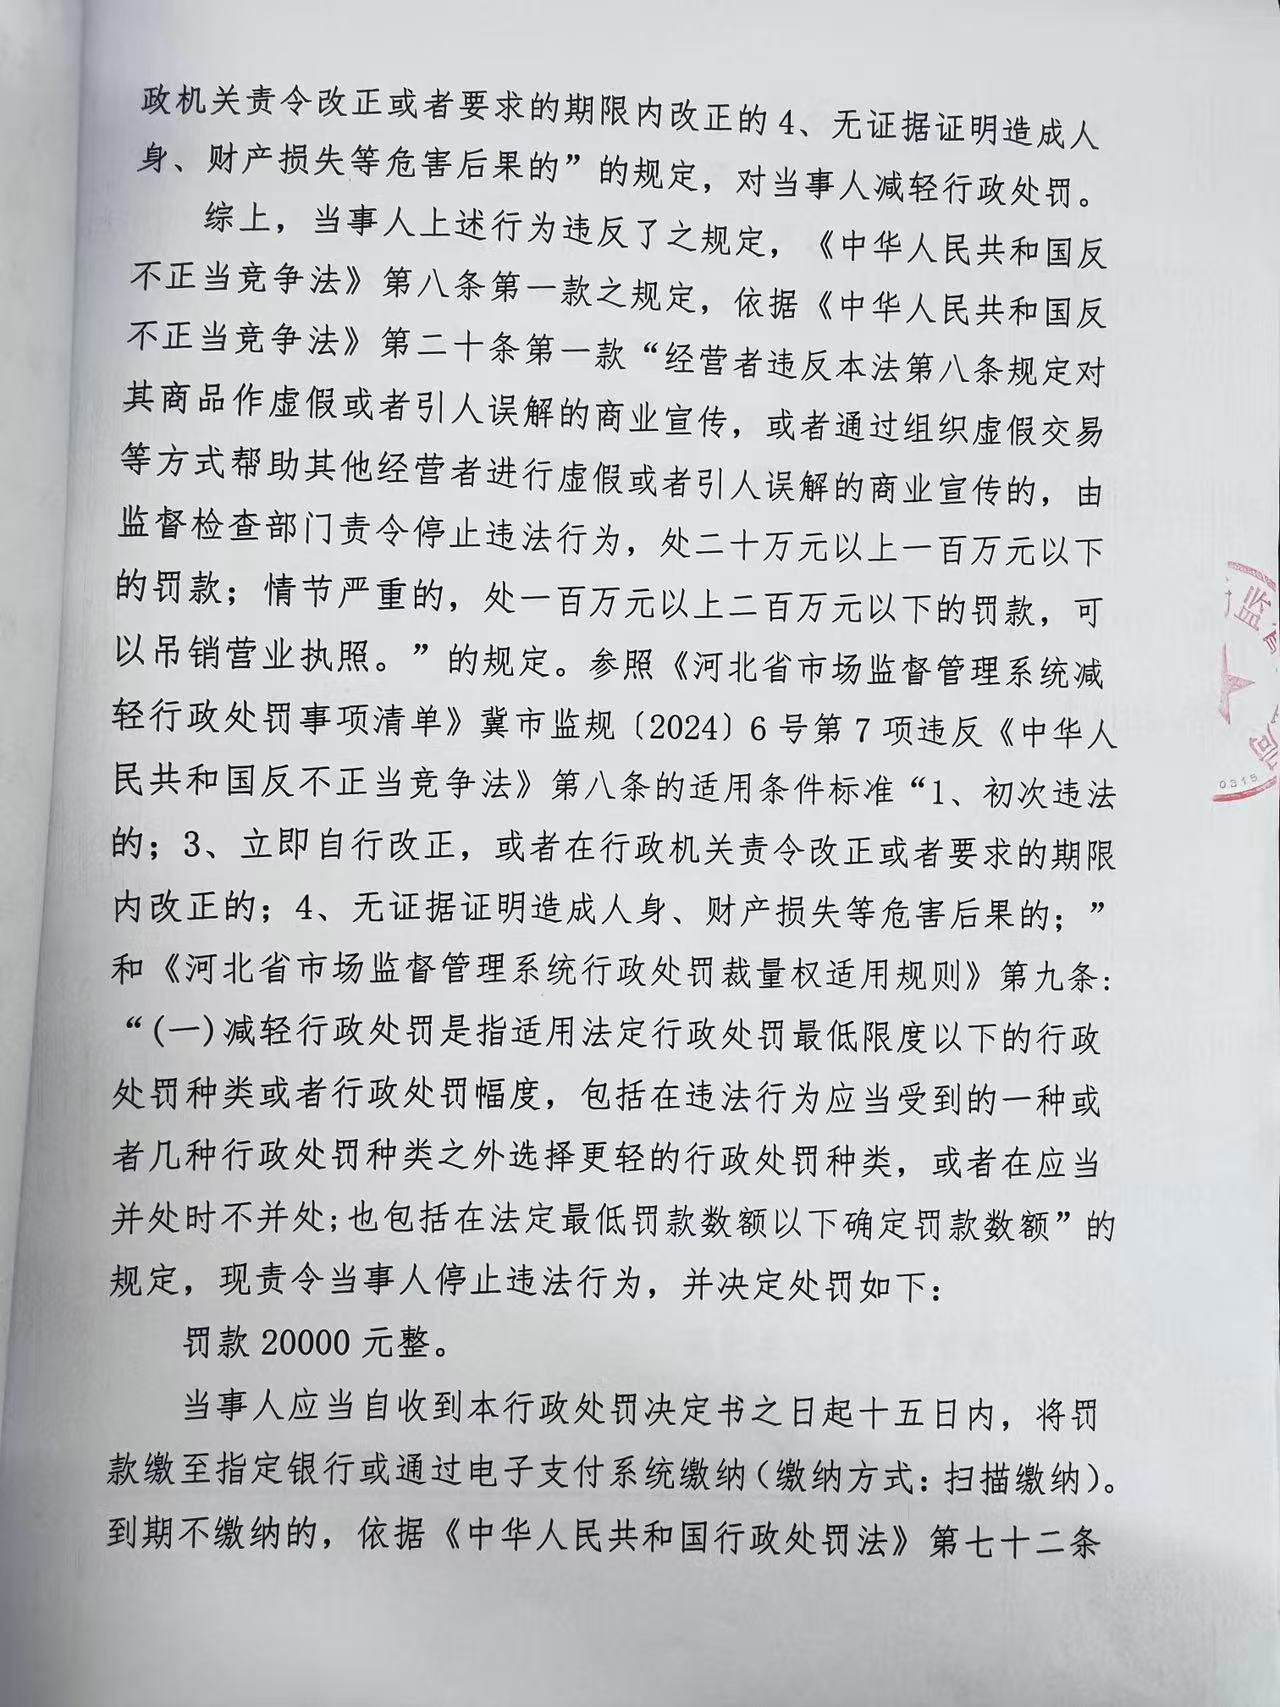 政机关责令改正或者要求的期限内改正的 4、无证据证明造成人
身、财产损失等危害后果的”的规定，对当事人减轻行政处罚。
综上，当事人上述行为违反了之规定，《中华人民共和国反
不正当竞争法》第八条第一款之规定，依据《中华人民共和国反
不正当竞争法》第二十条第一款“经营者违反本法第八条规定对
其商品作虚假或者引人误解的商业宣传，或者通过组织虚假交易
等方式帮助其他经营者进行虚假或者引人误解的商业宣传的，由
监督检查部门责令停止违法行为，处二十万元以上一百万元以下
的罚款；情节严重的，处一百万元以上二百万元以下的罚款，可
以吊销营业执照。”的规定。参照《河北省市场监督管理系统减
轻行政处罚事项清单》冀市监规〔2024〕6 号第 7 项违反《中华人
民共和国反不正当竞争法》第八条的适用条件标准“1、初次违法
的；3、立即自行改正，或者在行政机关责令改正或者要求的期限
内改正的；4、无证据证明造成人身、财产损失等危害后果的；”
和《河北省市场监督管理系统行政处罚裁量权适用规则》第九条：
“(一)减轻行政处罚是指适用法定行政处罚最低限度以下的行政
处罚种类或者行政处罚幅度，包括在违法行为应当受到的一种或
者几种行政处罚种类之外选择更轻的行政处罚种类，或者在应当
并处时不并处；也包括在法定最低罚款数额以下确定罚款数额”的
规定，现责令当事人停止违法行为，并决定处罚如下：
罚款 20000 元整。
当事人应当自收到本行政处罚决定书之日起十五日内，将罚
款缴至指定银行或通过电子支付系统缴纳（缴纳方式：扫描缴纳）。
到期不缴纳的，依据《中华人民共和国行政处罚法》第七十二条
监
局
0315